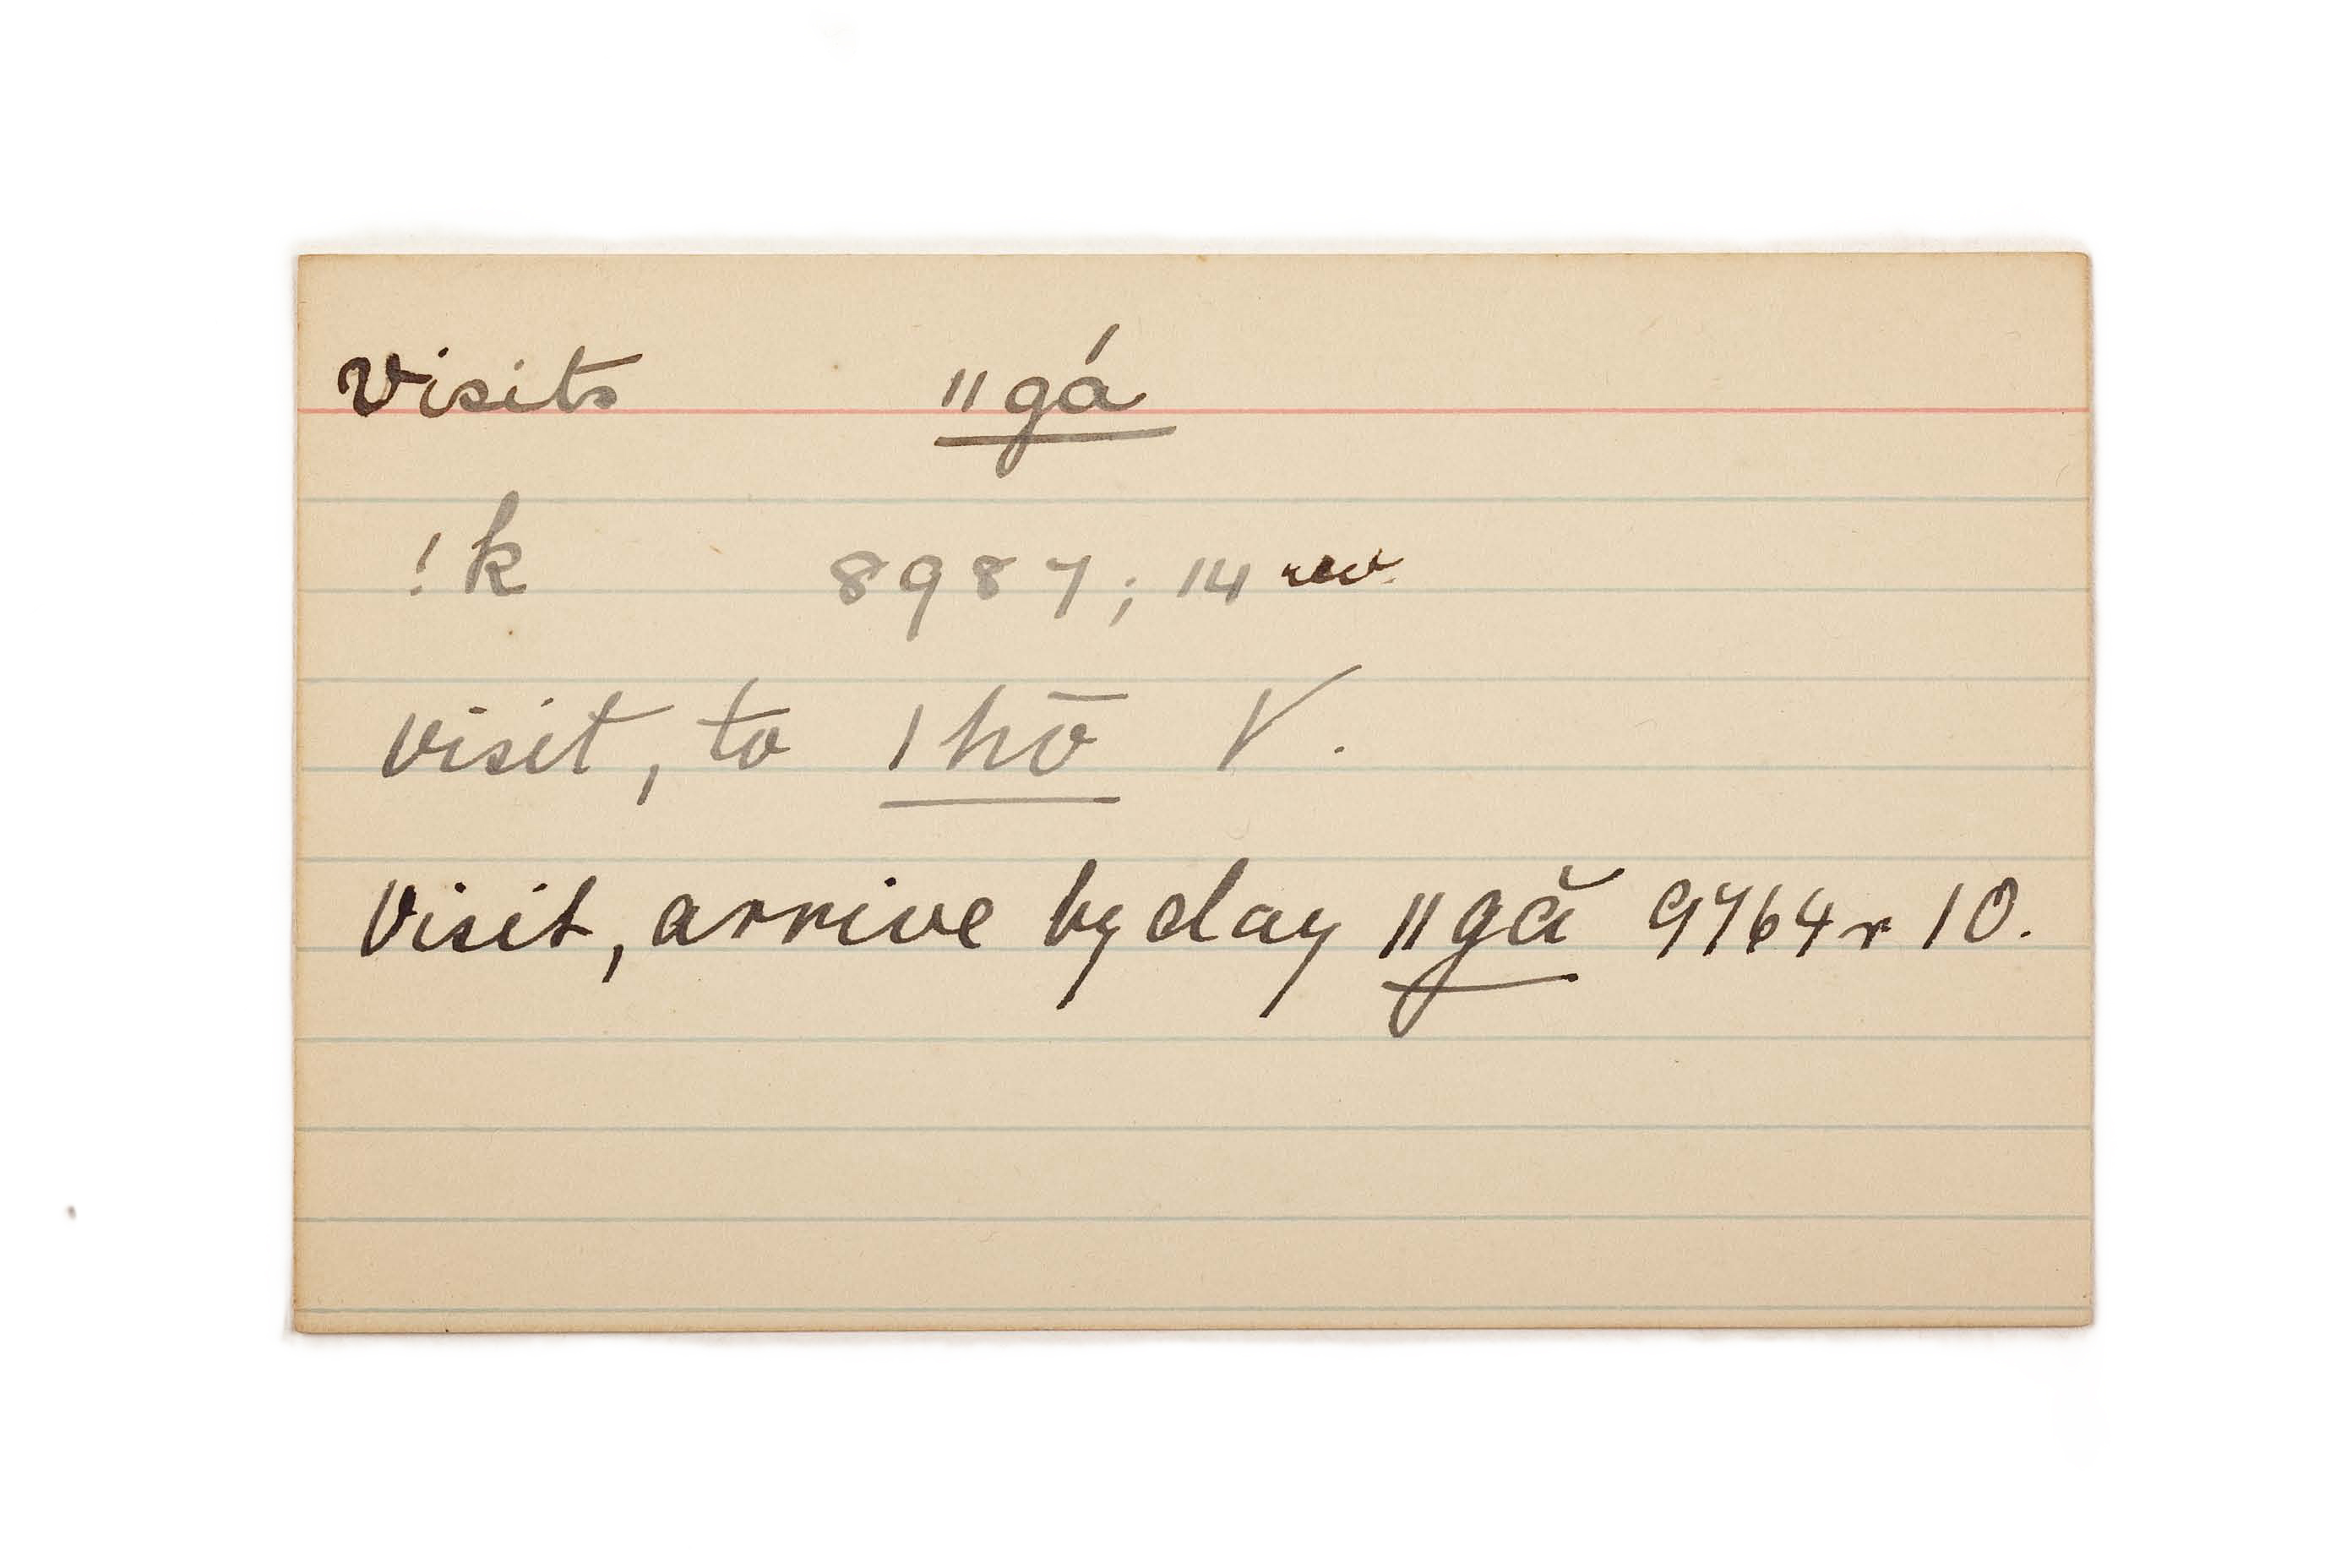 Visits ǁgá
!k 8987; 14 rev.
visit, to ǀhō V.
Visit, arrive by day ǁgă 9764 r 10.